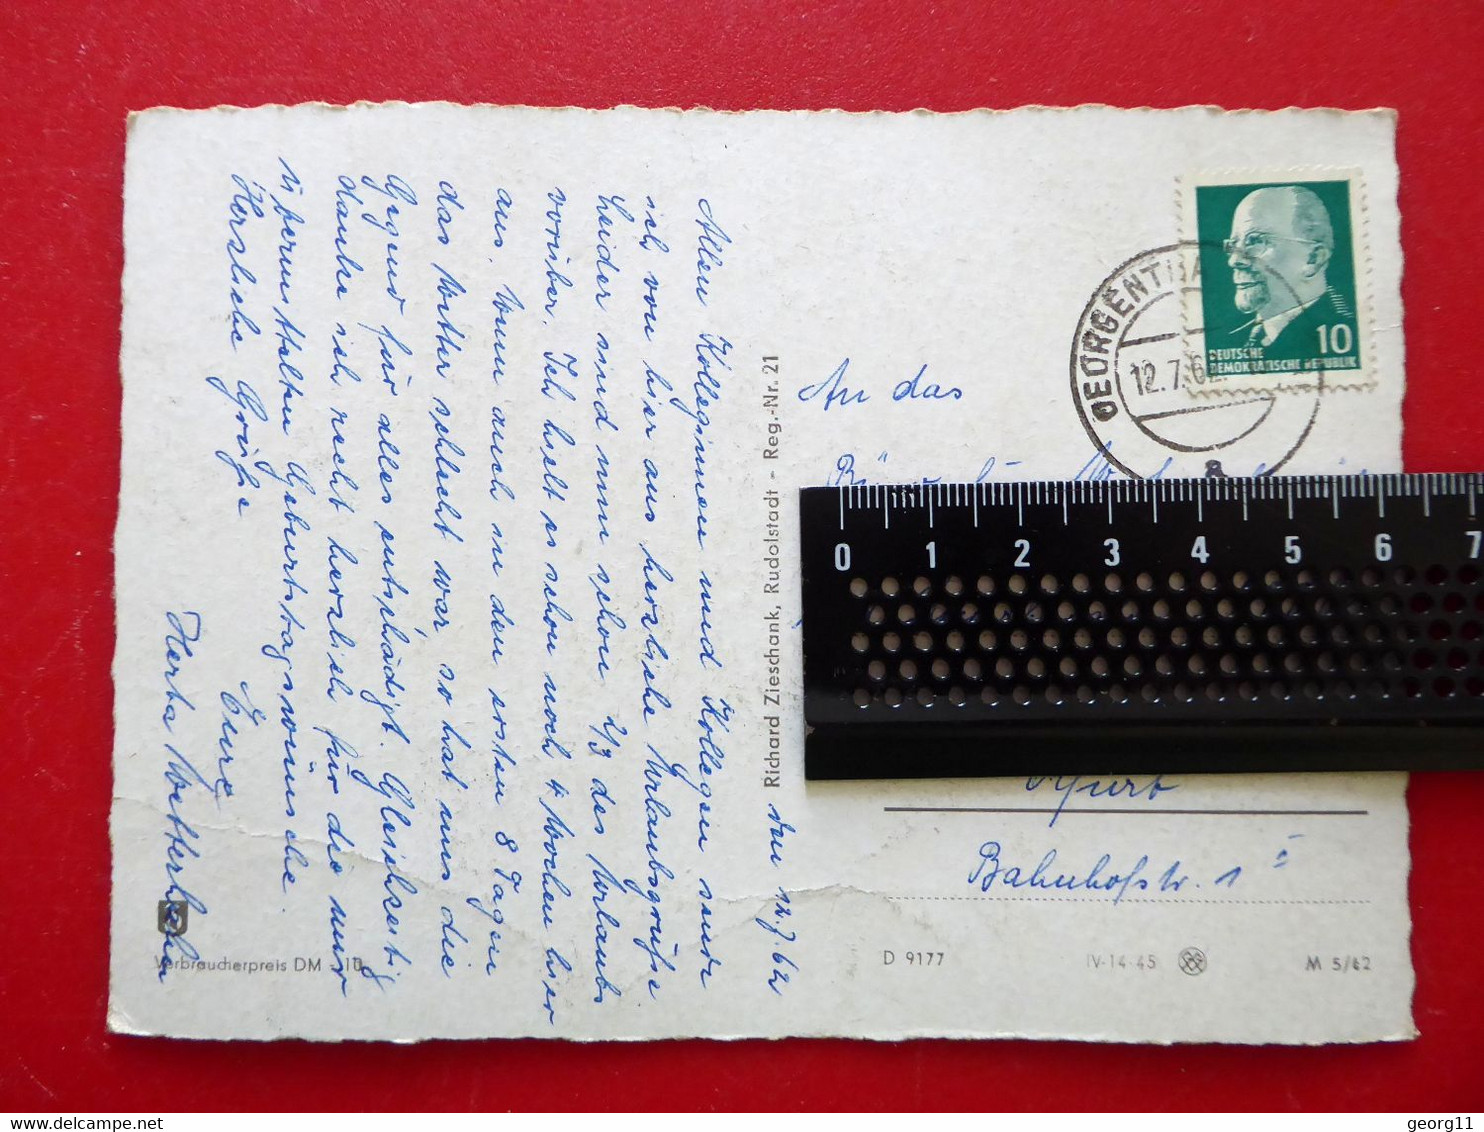 den 12.7.62
Allen Kolleginnen und Kollegen sende
ich von hier aus herzliche Urlaubsgrüße
Leider sind nun schon 2/3 des Urlaubs
vorüber. Ich hielt es schon noch 4 Wochen hier
aus. Wenn auch in den ersten 8 Tagen
das Wetter schlecht war so hat uns die
Gegend für alles entschädigt. Gleichzeitig
danke ich recht herzlich für die mir
übermittelten Geburtstagswünsche.
Herzliche Grüße
Eure
Herta
Verbraucherpreis DM -,10
Richard Zieschank, Rudolstadt - Reg.-Nr. 21
GEORGENTHA
12.7.62
a
10
DEUTSCHE
DEMOKRATISCHE REPUBLIK
An das
0 1 2 3 4 5 6 7
Erfurt
Bahnhofstr. 1
D 9177
IV-14-45
M 5/62
georg11